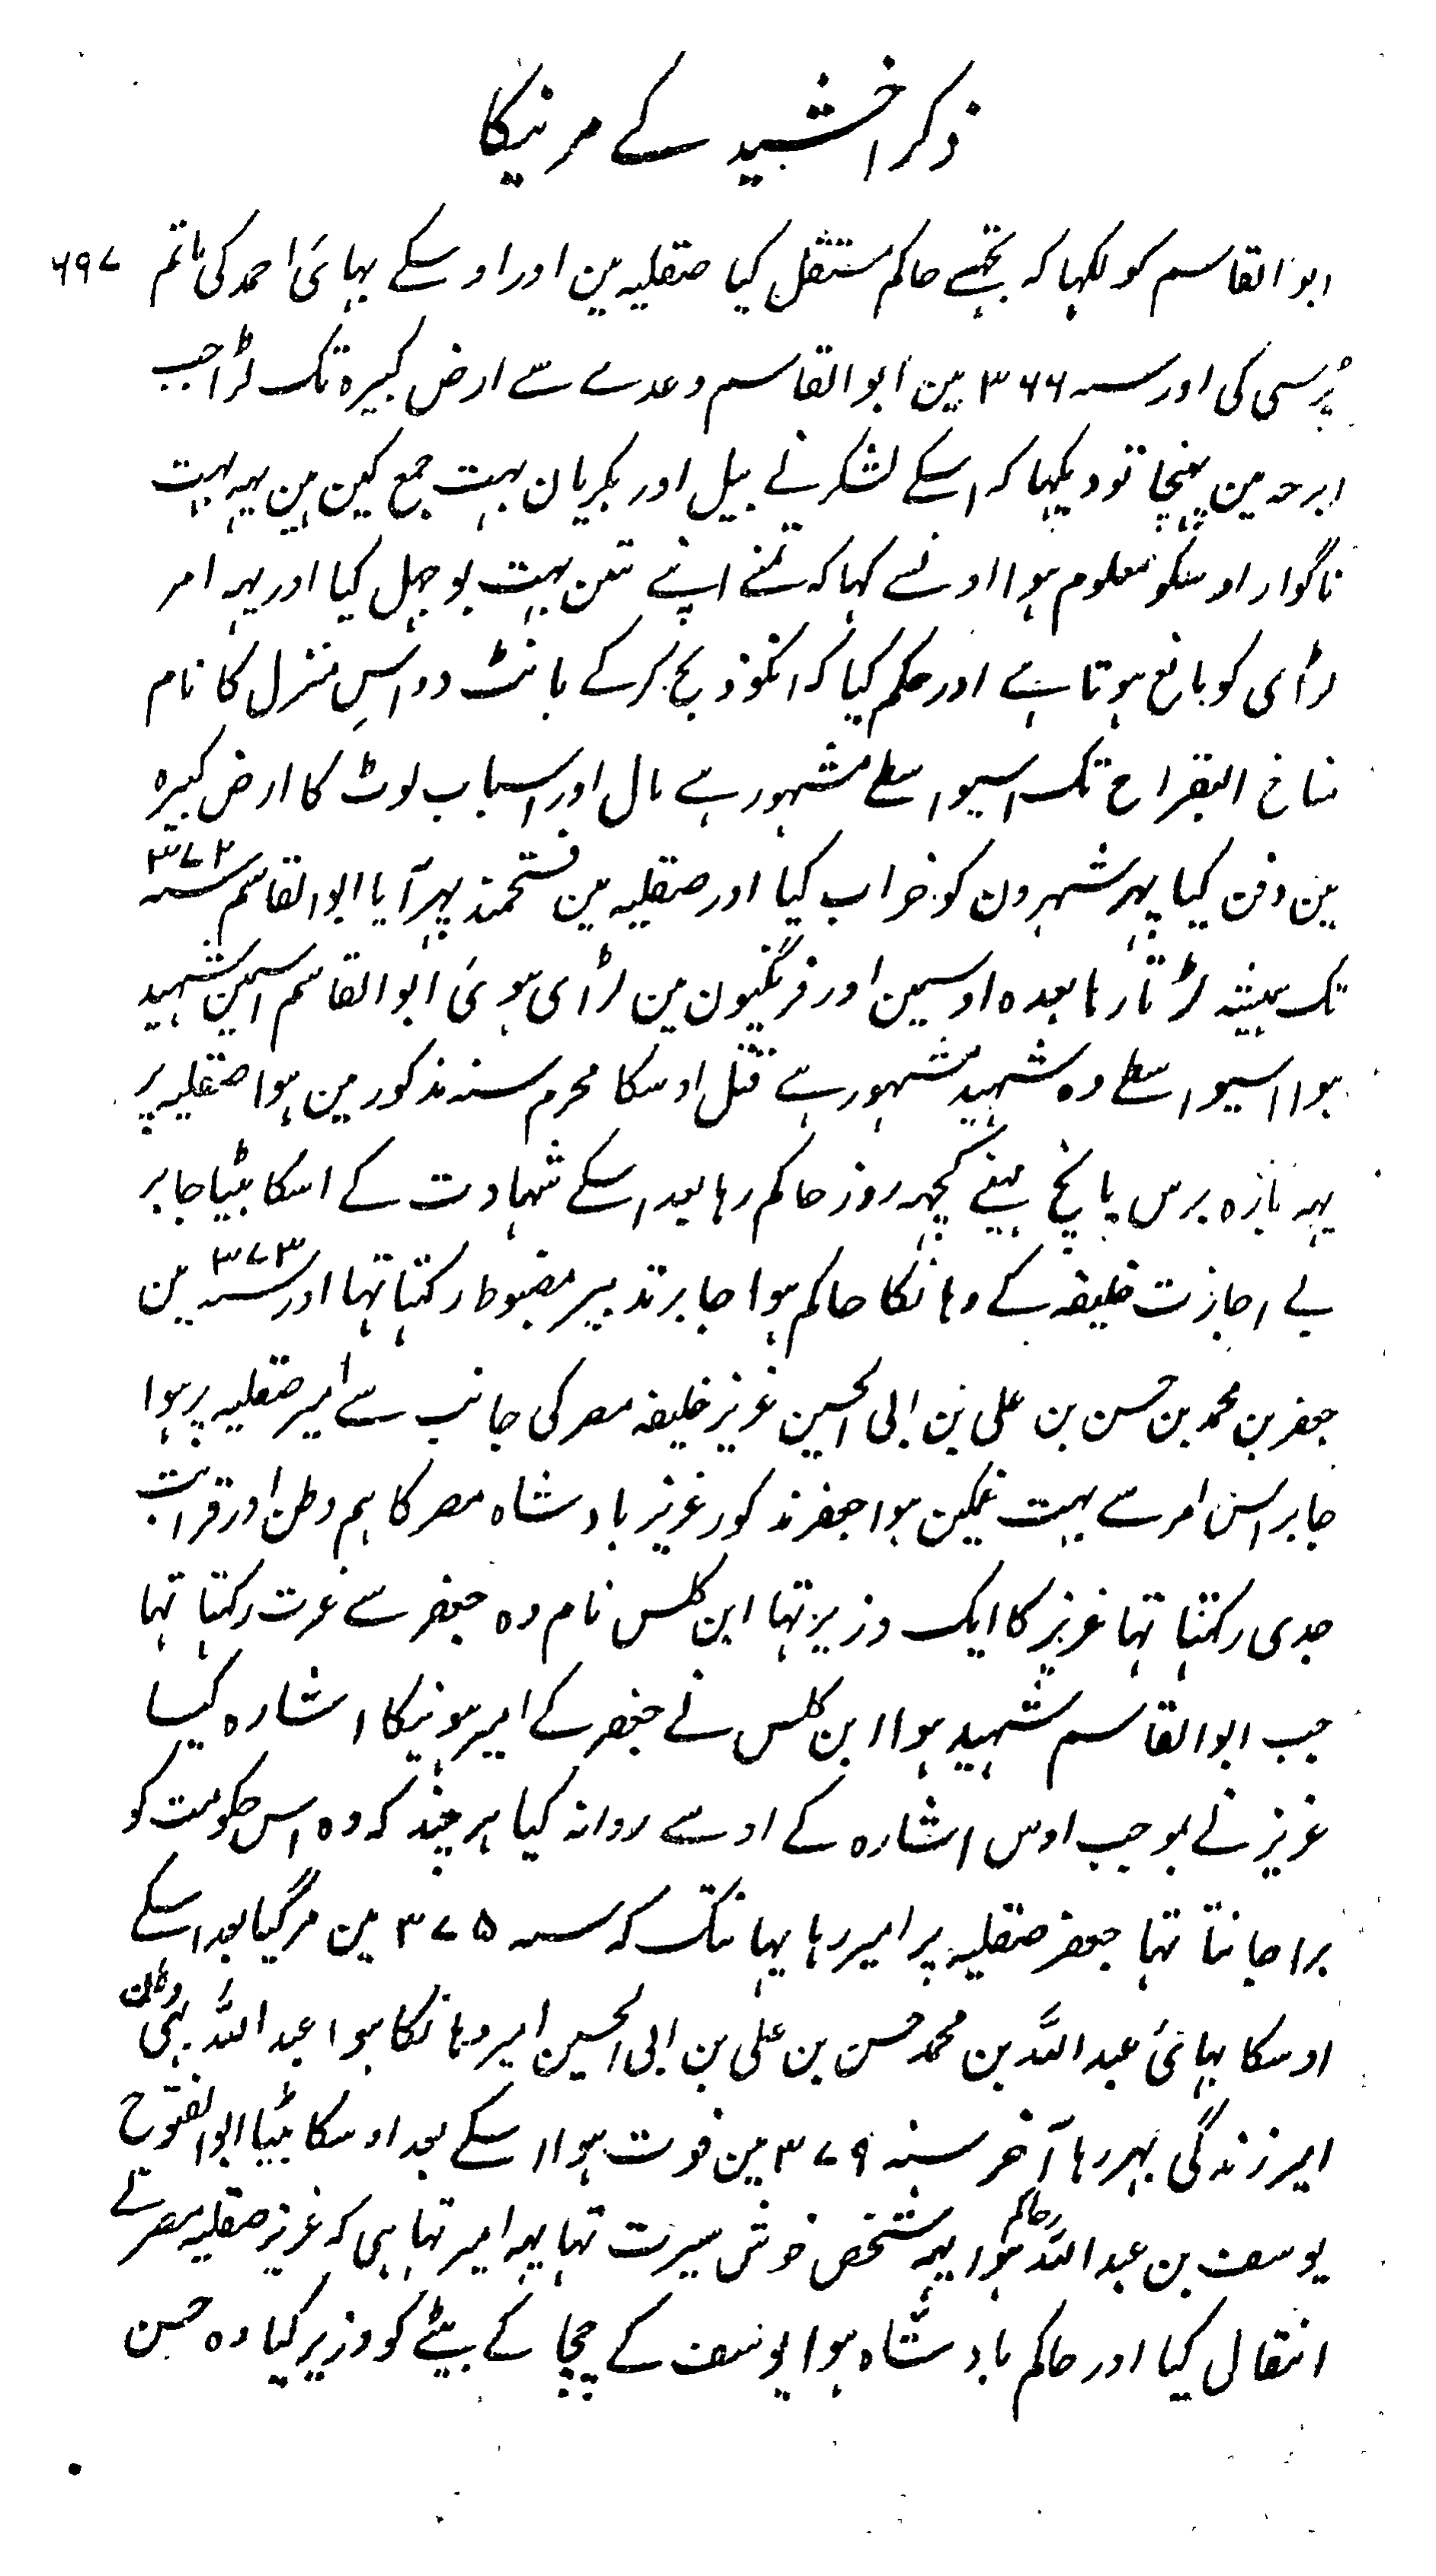 ذکر اخشید کے مرنیکا
ابو القاسم کو لکہا کہ تجہے حاکم مستقل کیا صقلیہ مین اور اوسکے بہائی احمد کی ماتم ۶۹۷
پرسی کی اور سنہ ۳۶۶ مین ابو القاسم وعدے سے ارض کبیرہ تک لڑا جب
ابرحہ مین پہنچا تو دیکہا کہ اسکے لشکر نے بیل اور بکریان بہت جمع کین ہین یہہ بہت
ناگوار اوسکو معلوم ہوا اونسے کہا کہ تمنے اپنے تئن بہت بوجہل کیا اور یہہ امر
لڑائی کو مانع ہوتا ہے اور حکم کیا کہ انکو ذبح کرکے بانٹ دو اس منزل کا نام
مناخ البقر اج تک اسیواسطے مشہور ہے مال اور اسباب لوٹ کا ارض کبیرہ
مین دفن کیا پہر شہرون کو خراب کیا اور صقلیہ مین فتحمند پہر آیا ابو القاسم سنہ ۳۷۲
تک ہمیشہ لڑتا رہا بعدہ اوسمین اور فرنگیون مین لڑائی ہوئی ابو القاسم اسمین شہید
ہوا اسیواسطے وہ شہید مشہور ہے قتل اوسکا محرم سنہ مذکور مین ہوا صقلیہ پر
یہہ بارہ برس پانچ مہینے کچہہ روز حاکم رہا بعد اسکے شہادت کے اسکا بیٹیا جابر
بے اجازت خلیفہ کے وہانکا حاکم ہوا جابر تدبیر مضبوط رکہتا تہا اور سنہ ۳۷۳ مین
جعفر بن محمد بن حسن بن علی بن ابی الحسین عزیز خلیفہ مصر کی جانب سے امیر صقلیہ پر ہوا
جابر اس امر سے بہت غمگین ہوا جعفر مذکور عزیز بادشاہ مصر کا ہم وطن اور قرابت
جدی رکہتا تہا عزیز کا ایک وزیر تہا ابن کلس نام وہ جعفر سے غیرت رکہتا تہا
جب ابو القاسم شہید ہوا ابن کلس نے جعفر کے امیر ہونیکا اشارہ کیا
عزیز نے بموجب اوس اشارہ کے اوسے روانہ کیا ہر چند کہ وہ اس حکومت کو
برا جانتا تہا جعفر صقلیہ پر امیر رہا یہانتک کہ سنہ ۳۷۵ مین مرگیا بعد اسکے
اوسکا بہائی عبد اللہ بن محمد حسن بن علی بن ابی الحسین امیر وہانکا ہوا عبد اللہ بہی وہان
امیر زندگی بہر رہا آخر سنہ ۳۷۹ مین فوت ہوا اسکے بعد اوسکا بیٹیا ابو الفتوح
یوسف بن عبد اللہ حاکم ہوا یہہ شخص خوش سیرت تہا یہہ امیر تہا ہی کہ عزیز صقلیہ مصر نے
انتقال کیا اور حاکم بادشاہ ہوا یوسف کے چچا کے بیٹے کو وزیر کیا وہ حسن